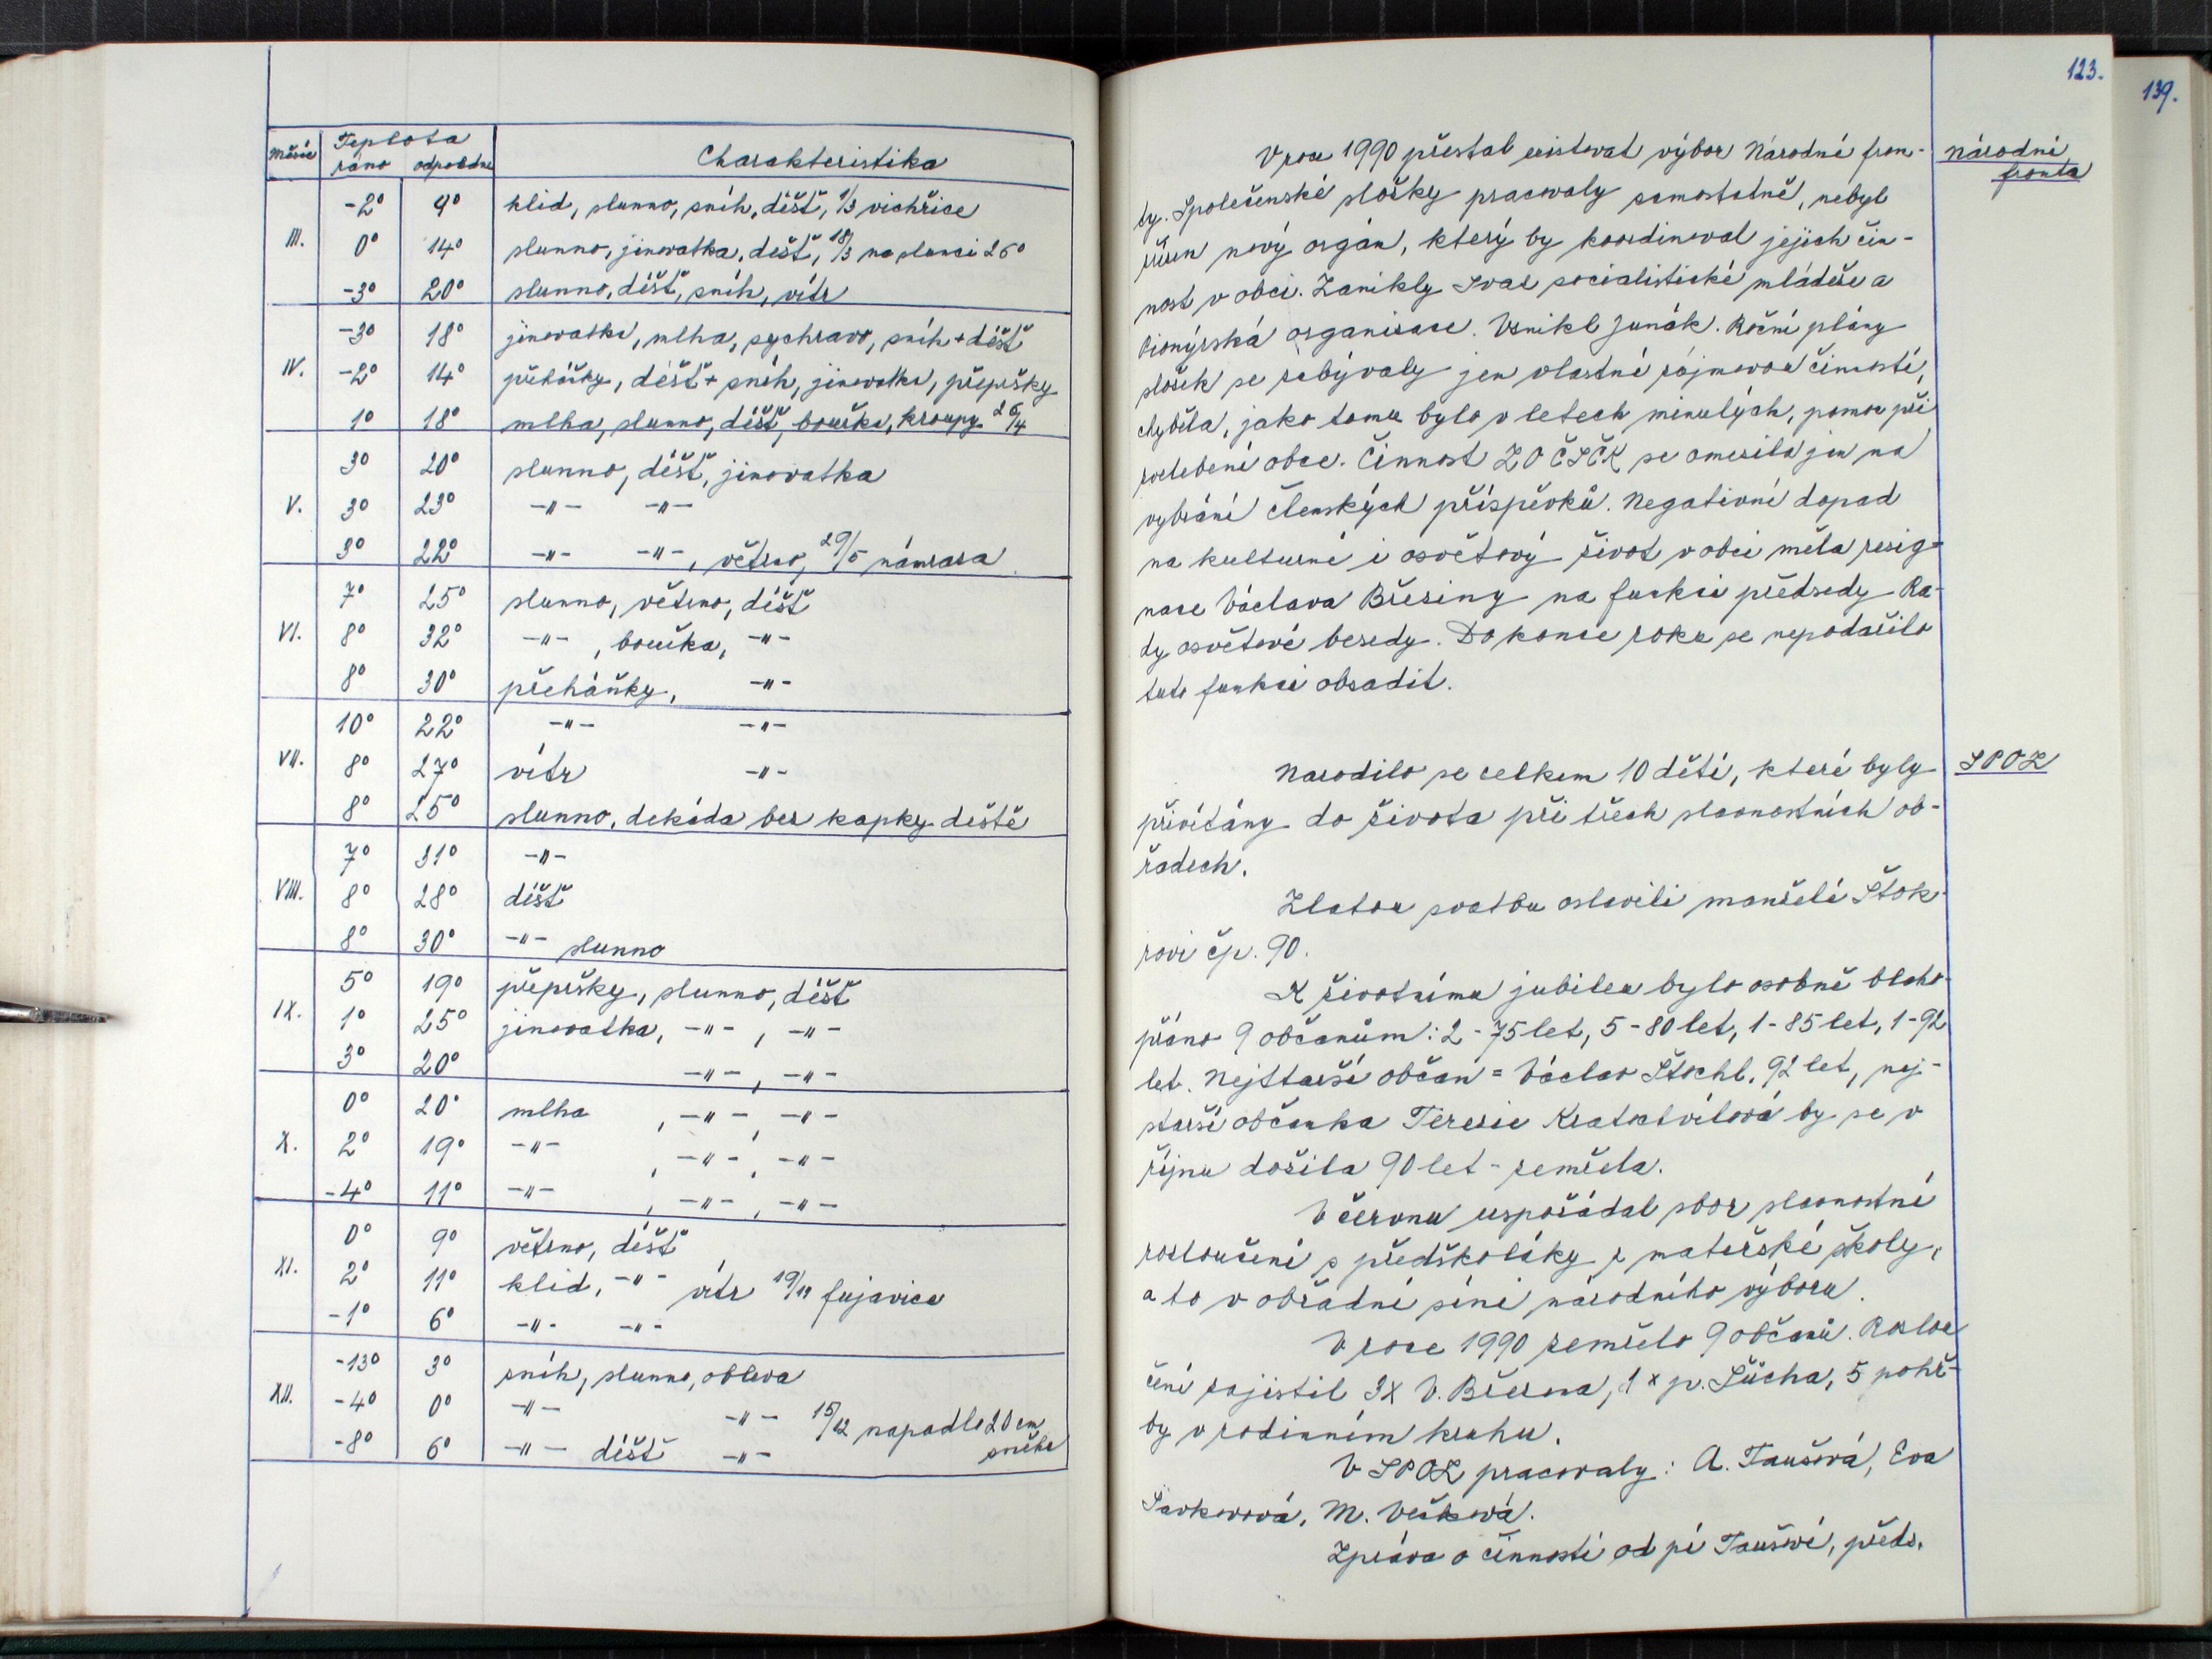 Měsíc Teplota Charakteristika
ráno odpoledne
-2° 9° klid, slunno, sníh, déšť, 1/3 vichřice
III. 0° 14° slunno, jinovatka, déšť, 18/3 na slunci 25°
-3° 20° slunno, déšť, sníh, vítr
-3° 18° jinovatka, mlha, sychravo, sníh + déšť
IV. -2° 14° přeháňky, déšť + sníh, jinovatka, přepršky
1° 18° mlha, slunno, déšť, bouřka, kroupy 26/4
3° 20° slunno, déšť, jinovatka
V. 3° 23° -"- -"-
3° 22° -"- -"-, větrno, 29/5 námraza
7° 25° slunno, větrno, déšť
VI. 8° 32° -"- , bouřka, -"-
8° 30° přeháňky, -"-
10° 22° -"- -"-
VII. 8° 27° vítr -"-
8° 25° slunno, dekáda bez kapky deště
7° 31° -"-
VIII. 8° 28° déšť
8° 30° -"- slunno
5° 19° přepršky, slunno, déšť
IX. 1° 25° jinovatka, -"- , -"-
3° 20° -"- , -"-
0° 20° mlha , -"- , -"-
X. 2° 19° -"- , -"- , -"-
-4° 11° -"- , -"- , -"-
0° 9° větrno, déšť
XI. 2° 11° klid, -"- vítr 19/11 fujavice
-1° 6° -"- -"-
-13° 3° sníh, slunno, obleva
XII. -4° 0° -"- -"- 15/12 napadlo 20 cm
-8° 6° -"- déšť -"- sněhu
123.
139.
V roce 1990 přestal existovat výbor Národní fron-
Národní
fronta
ty. Společenské složky pracovaly samostatně, nebyl
zřízen nový orgán, který by koordinoval jejich čin-
nost v obci. Zanikly Svaz socialistické mládeže a
Pionýrská organizace. Vznikl Junák. Roční plány
složek se zabývaly jen vlastní zájmovou činností,
chyběla, jako tomu bylo v letech minulých, pomoc při
zvelebení obce. Činnost ZO ČSČK se omezila jen na
vybrání členských příspěvků. Negativní dopad
na kulturní i osvětový život v obci měla rezig-
nace Václava Březiny na funkci předsedy Ra-
dy osvětové besedy. Do konce roku se nepodařilo
tuto funkci obsadit.
Narodilo se celkem 10 dětí, které byly
SPOZ
přivítány do života při třech slavnostních ob-
řadech.
Zlatou svatbu oslavili manželé Štok-
rovi čp. 90.
K životnímu jubileu bylo osobně blaho-
přáno 9 občanům: 2 - 75 let, 5 - 80 let, 1 - 85 let, 1 - 92
let. Nejstarší občan = Václav Štochl, 92 let, nej-
starší občanka Terezie Kratochvílová by se v
říjnu dožila 90 let - zemřela.
V červnu uspořádal sbor slavnostní
rozloučení s předškoláky z mateřské školy,
a to v obřadní síni národního výboru.
V roce 1990 zemřelo 9 občanů. Rozlou-
čení zajistil 3x V. Březina, 1x p. Sůcha, 5 pohř-
by v rodinném kruhu.
V SPOZ pracovaly: A. Taušová, Eva
M. Vešková.
Zpráva o činnosti od pí Taušové, předs.